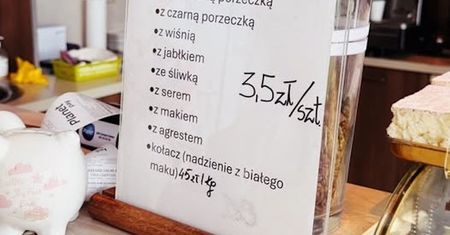 porzeczką
•z czarną porzeczką
•z wiśnią
•z jabłkiem
•ze śliwką
•z serem
•z makiem
•z agrestem
•kołacz (nadzienie z białego
maku) 45zł/kg
3,5zł/szt.
Planet
pay